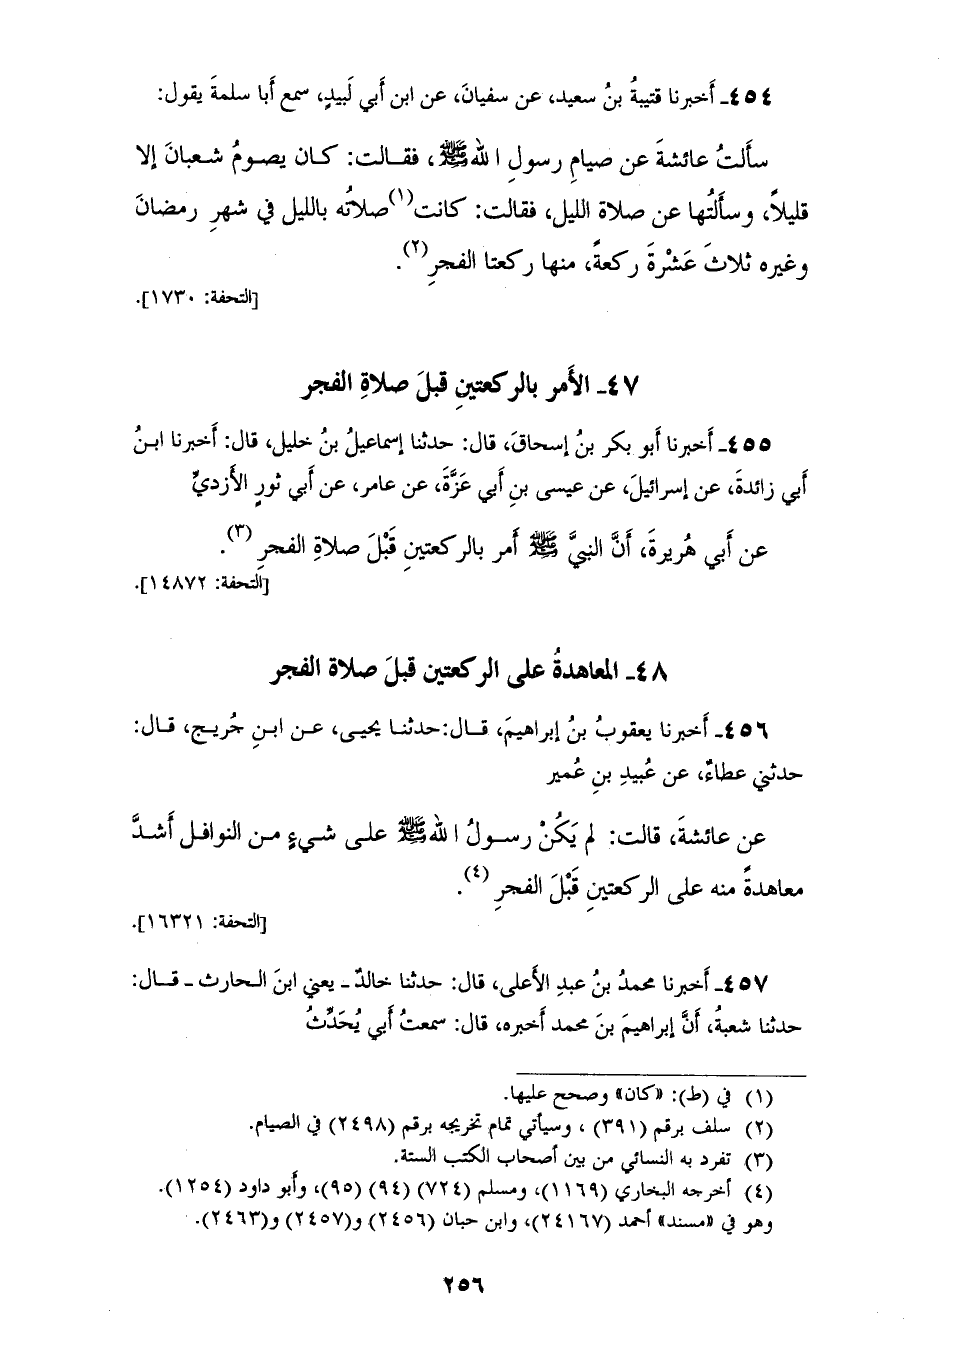 ٤٥٤ـ أَخبرنا قتيبةُ بنُ سعيد، عن سفيانَ، عن ابن أَبي لَبيدٍ، سمع أَبا سلمةَ يقول:
سأَلتُ عائشةَ عن صيامِ رسولِ اللهِ ﷺ، فقـالت: كـان يصـومُ شـعبانَ إلا
قليلاً، وسأَلتُها عن صلاة الليل، فقالت: كانت(١) صلاتُه بالليل في شهرِ رمضانَ
وغيره ثلاثَ عَشْرةَ ركعةً، منها ركعتا الفجرِ(٢).
[التحفة: ١٧٣٠].
٤٧ـ الأَمر بالركعتينِ قبلَ صلاةِ الفجر
٤٥٥ـ أَخبرنا أَبو بكر بنُ إسحاقَ، قال: حدثنا إسماعيلُ بنُ خليل، قال: أَخبرنا ابـنُ
أَبي زائدةَ، عن إسرائيلَ، عن عيسى بنِ أَبي عَزَّةَ، عن عامر، عن أَبي ثورٍ الأَزديِّ
عن أَبي هُريرةَ، أَنَّ النبيَّ ﷺ أَمر بالركعتينِ قَبْلَ صلاةِ الفجرِ(٣).
[التحفة: ١٤٨٧٢].
٤٨ـ المعاهدةُ على الركعتين قبلَ صلاة الفجر
٤٥٦ـ أَخبرنا يعقوبُ بنُ إبراهيمَ، قـال:حدثنـا يحيـى، عـن ابـنِ جُريـج، قـال:
حدثني عطاءٌ، عن عُبيدِ بنِ عُمير
عن عائشةَ، قالت: لم يَكُنْ رسـولُ اللهِ ﷺ علـى شـيءٍ مـن النوافـل أَشـدَّ
معاهدةً منه على الركعتينِ قَبْلَ الفجرِ(٤).
[التحفة: ١٦٣٢١].
٤٥٧ـ أَخبرنا محمدُ بنُ عبدِ الأَعلى، قال: حدثنا خالدٌ ـ يعني ابنَ الحارث ـ قـال:
حدثنا شعبةُ، أَنَّ إبراهيمَ بنَ محمد أَخبره، قال: سمعتُ أَبي يُحَدِّثُ
(١) في (ط): «كان» وصحح عليها.
(٢) سلف برقم (٣٩١) ، وسيأتي تمام تخريجه برقم (٢٤٩٨) في الصيام.
(٣) تفرد به النسائي من بين أصحاب الكتب الستة.
(٤) أخرجه البخاري (١١٦٩)، ومسلم (٧٢٤) (٩٤) (٩٥)، وأَبو داود (١٢٥٤).
وهو في «مسند» أحمد (٢٤١٦٧)، وابن حبان (٢٤٥٦) و(٢٤٥٧) و(٢٤٦٣).
٢٥٦